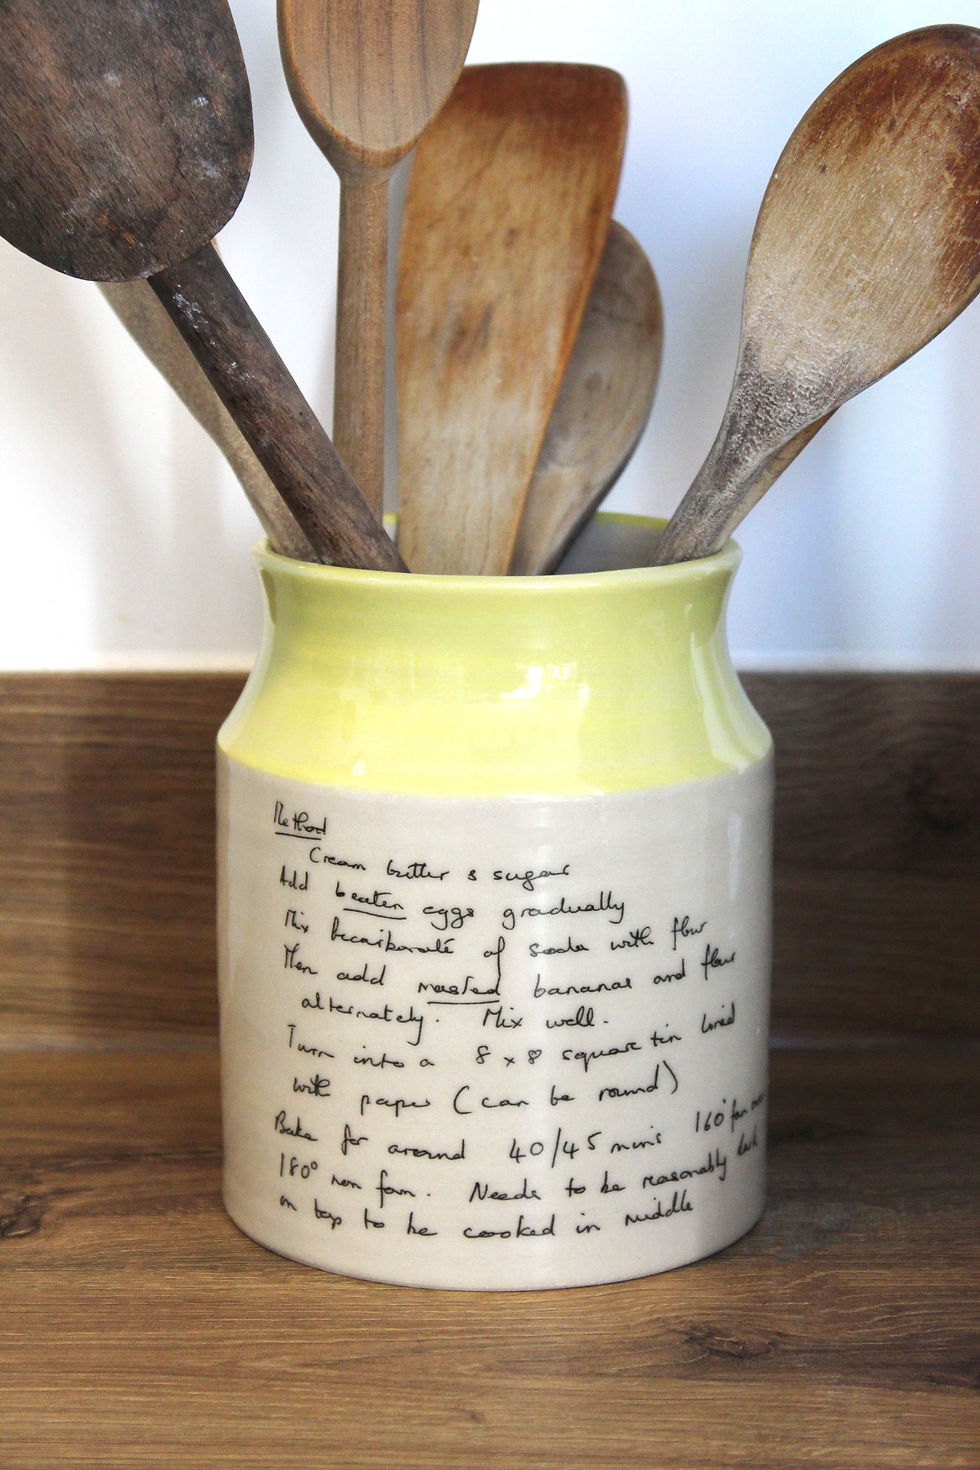 Method
Cream butter & sugar
Add beaten eggs gradually
Mix bicarbonate of soda with flour
Then add mashed bananas and flour
alternately. Mix well.
Turn into a 8 x 8 square tin lined
with paper (can be round)
Bake for around 40/45 mins 160° fan
180° non fan. Needs to be reasonably dark
on top to be cooked in middle